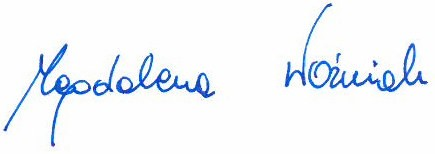 Magdalena Woźniak